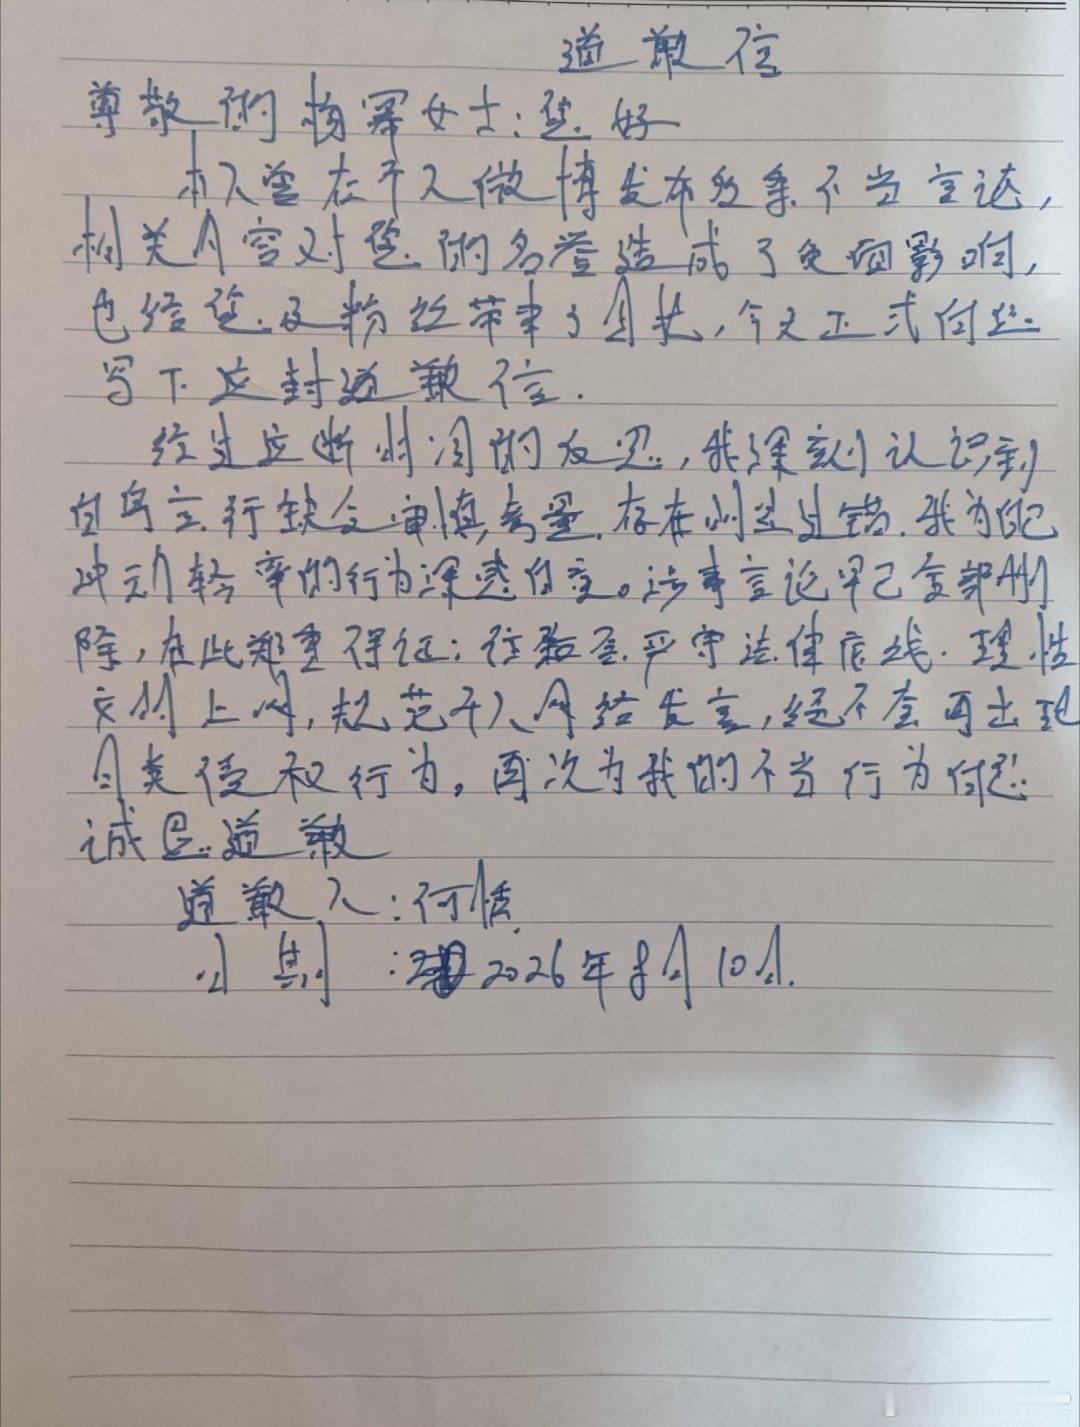 道歉信
尊敬的杨幂女士：您好
本人曾在个人微博发布数条不当言论，
相关内容对您的名誉造成了负面影响，
也给您及粉丝带来了困扰，今天正式向您
写下这封道歉信.
经过这断时间的反思，我深刻认识到
自身言行缺乏审慎考量.存在明显过错.我为自己
冲动轻率的行为深感自责。涉事言论早已全部删
除，在此郑重保证：往后严守法律底线.理性
文明上网，规范个人网络发言，绝不会再出现
同类侵权行为。再次为我的不当行为向您
诚恳道歉
道歉人：何恬
日期：2026年8月10日.